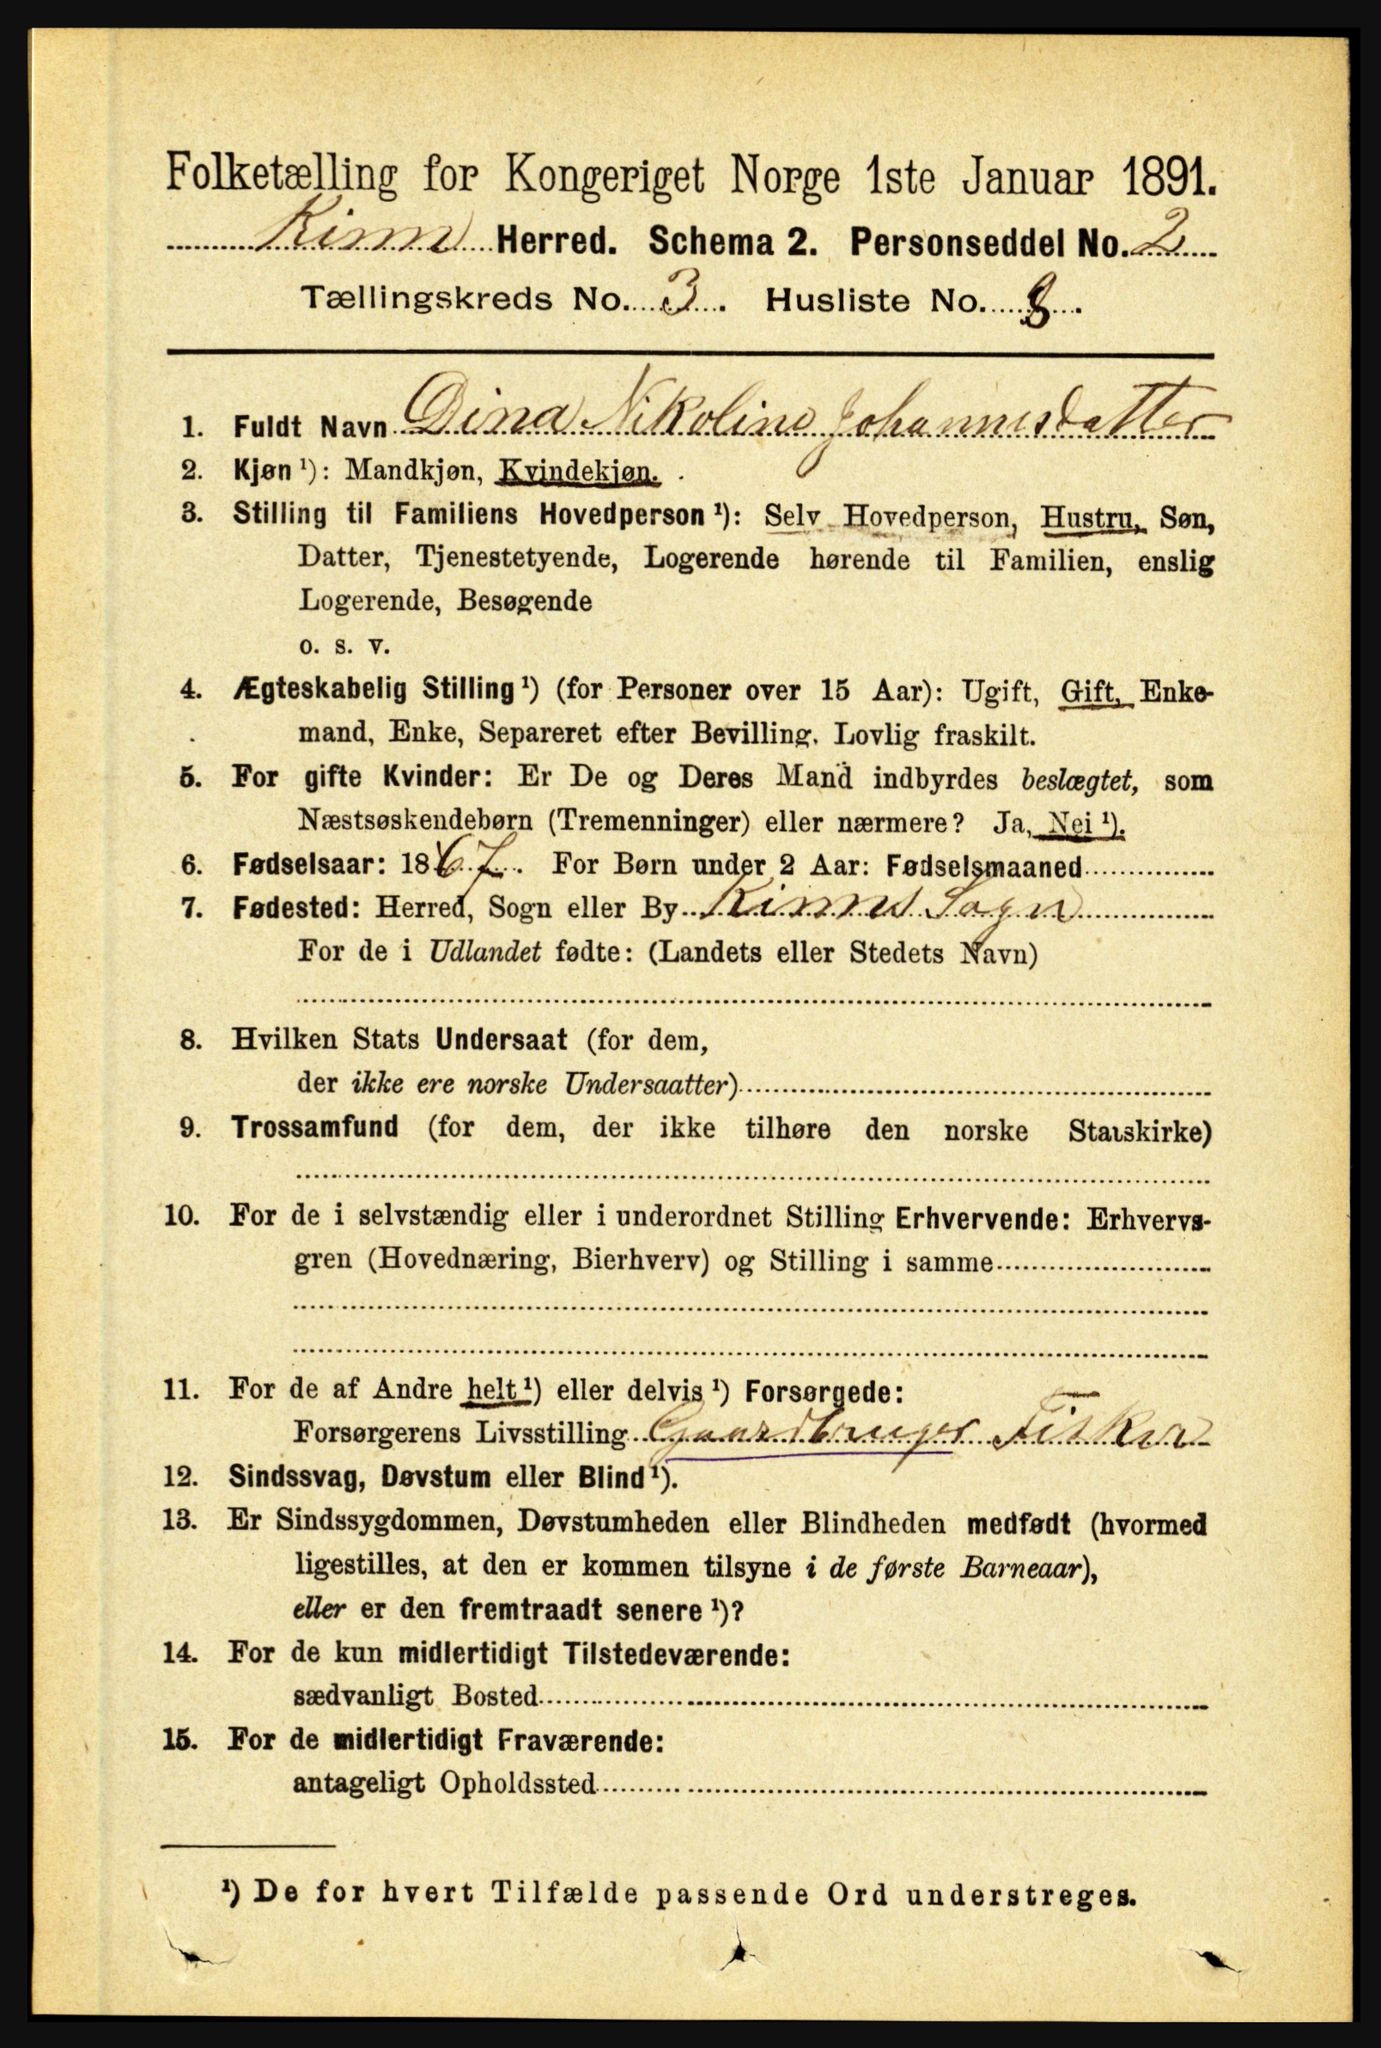 Folketælling for Kongeriget Norge 1ste Januar 1891.
Kinn Herred. Schema 2. Personseddel No. 2
Tællingskreds No. 3. Husliste No. 8.
1. Fuldt Navn Dina Nikoline Johannesdatter
2. Kjøn ¹): Mandkjøn, Kvindekjøn.
3. Stilling til Familiens Hovedperson ¹): Selv Hovedperson, Hustru, Søn,
Datter, Tjenestetyende, Logerende hørende til Familien, enslig
Logerende, Besøgende
o. s. v.
4. Ægteskabelig Stilling ¹) (for Personer over 15 Aar): Ugift, Gift, Enke-
mand, Enke, Separeret efter Bevilling. Lovlig fraskilt.
5. For gifte Kvinder: Er De og Deres Mand indbyrdes beslægtet, som
Næstsøskendebørn (Tremenninger) eller nærmere? Ja, Nei ¹).
6. Fødselsaar: 1867. For Børn under 2 Aar: Fødselsmaaned
7. Fødested: Herred, Sogn eller By Kinns Sogn
For de i Udlandet fødte: (Landets eller Stedets Navn)
8. Hvilken Stats Undersaat (for dem,
der ikke ere norske Undersaatter)
9. Trossamfund (for dem, der ikke tilhøre den norske Statskirke)
10. For de i selvstændig eller i underordnet Stilling Erhvervende: Erhvervs-
gren (Hovednæring, Bierhverv) og Stilling i samme
11. For de af Andre helt ¹) eller delvis ¹) Forsørgede:
Forsørgerens Livsstilling Gaardbruger Fisker
12. Sindssvag, Døvstum eller Blind ¹).
13. Er Sindssygdommen, Døvstumheden eller Blindheden medfødt (hvormed
ligestilles, at den er kommen tilsyne i de første Barneaar),
eller er den fremtraadt senere ¹)?
14. For de kun midlertidigt Tilstedeværende:
sædvanligt Bosted
15. For de midlertidigt Fraværende:
antageligt Opholdssted
¹) De for hvert Tilfælde passende Ord understreges.